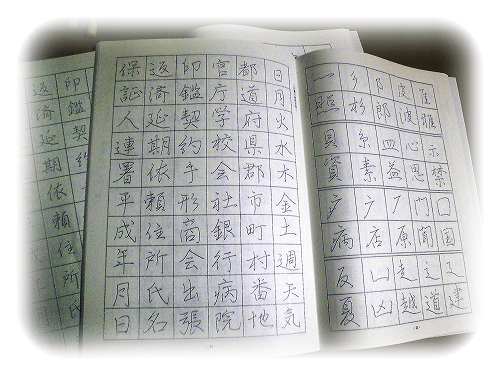 隹示禁囗国廴建
皮波心思門聞辶道
阝郎皿益厂原走越
彡杉糸素广店凵凶
照貝資疒病夂夏
日月火水木金土週天気
都道府県郡市町村番地
官庁学校会社銀行病院
印鑑契約手形商会出張
返済延期依頼住所氏名
保証人連署平成年月日
印鑑契約
返済延期依頼住所氏